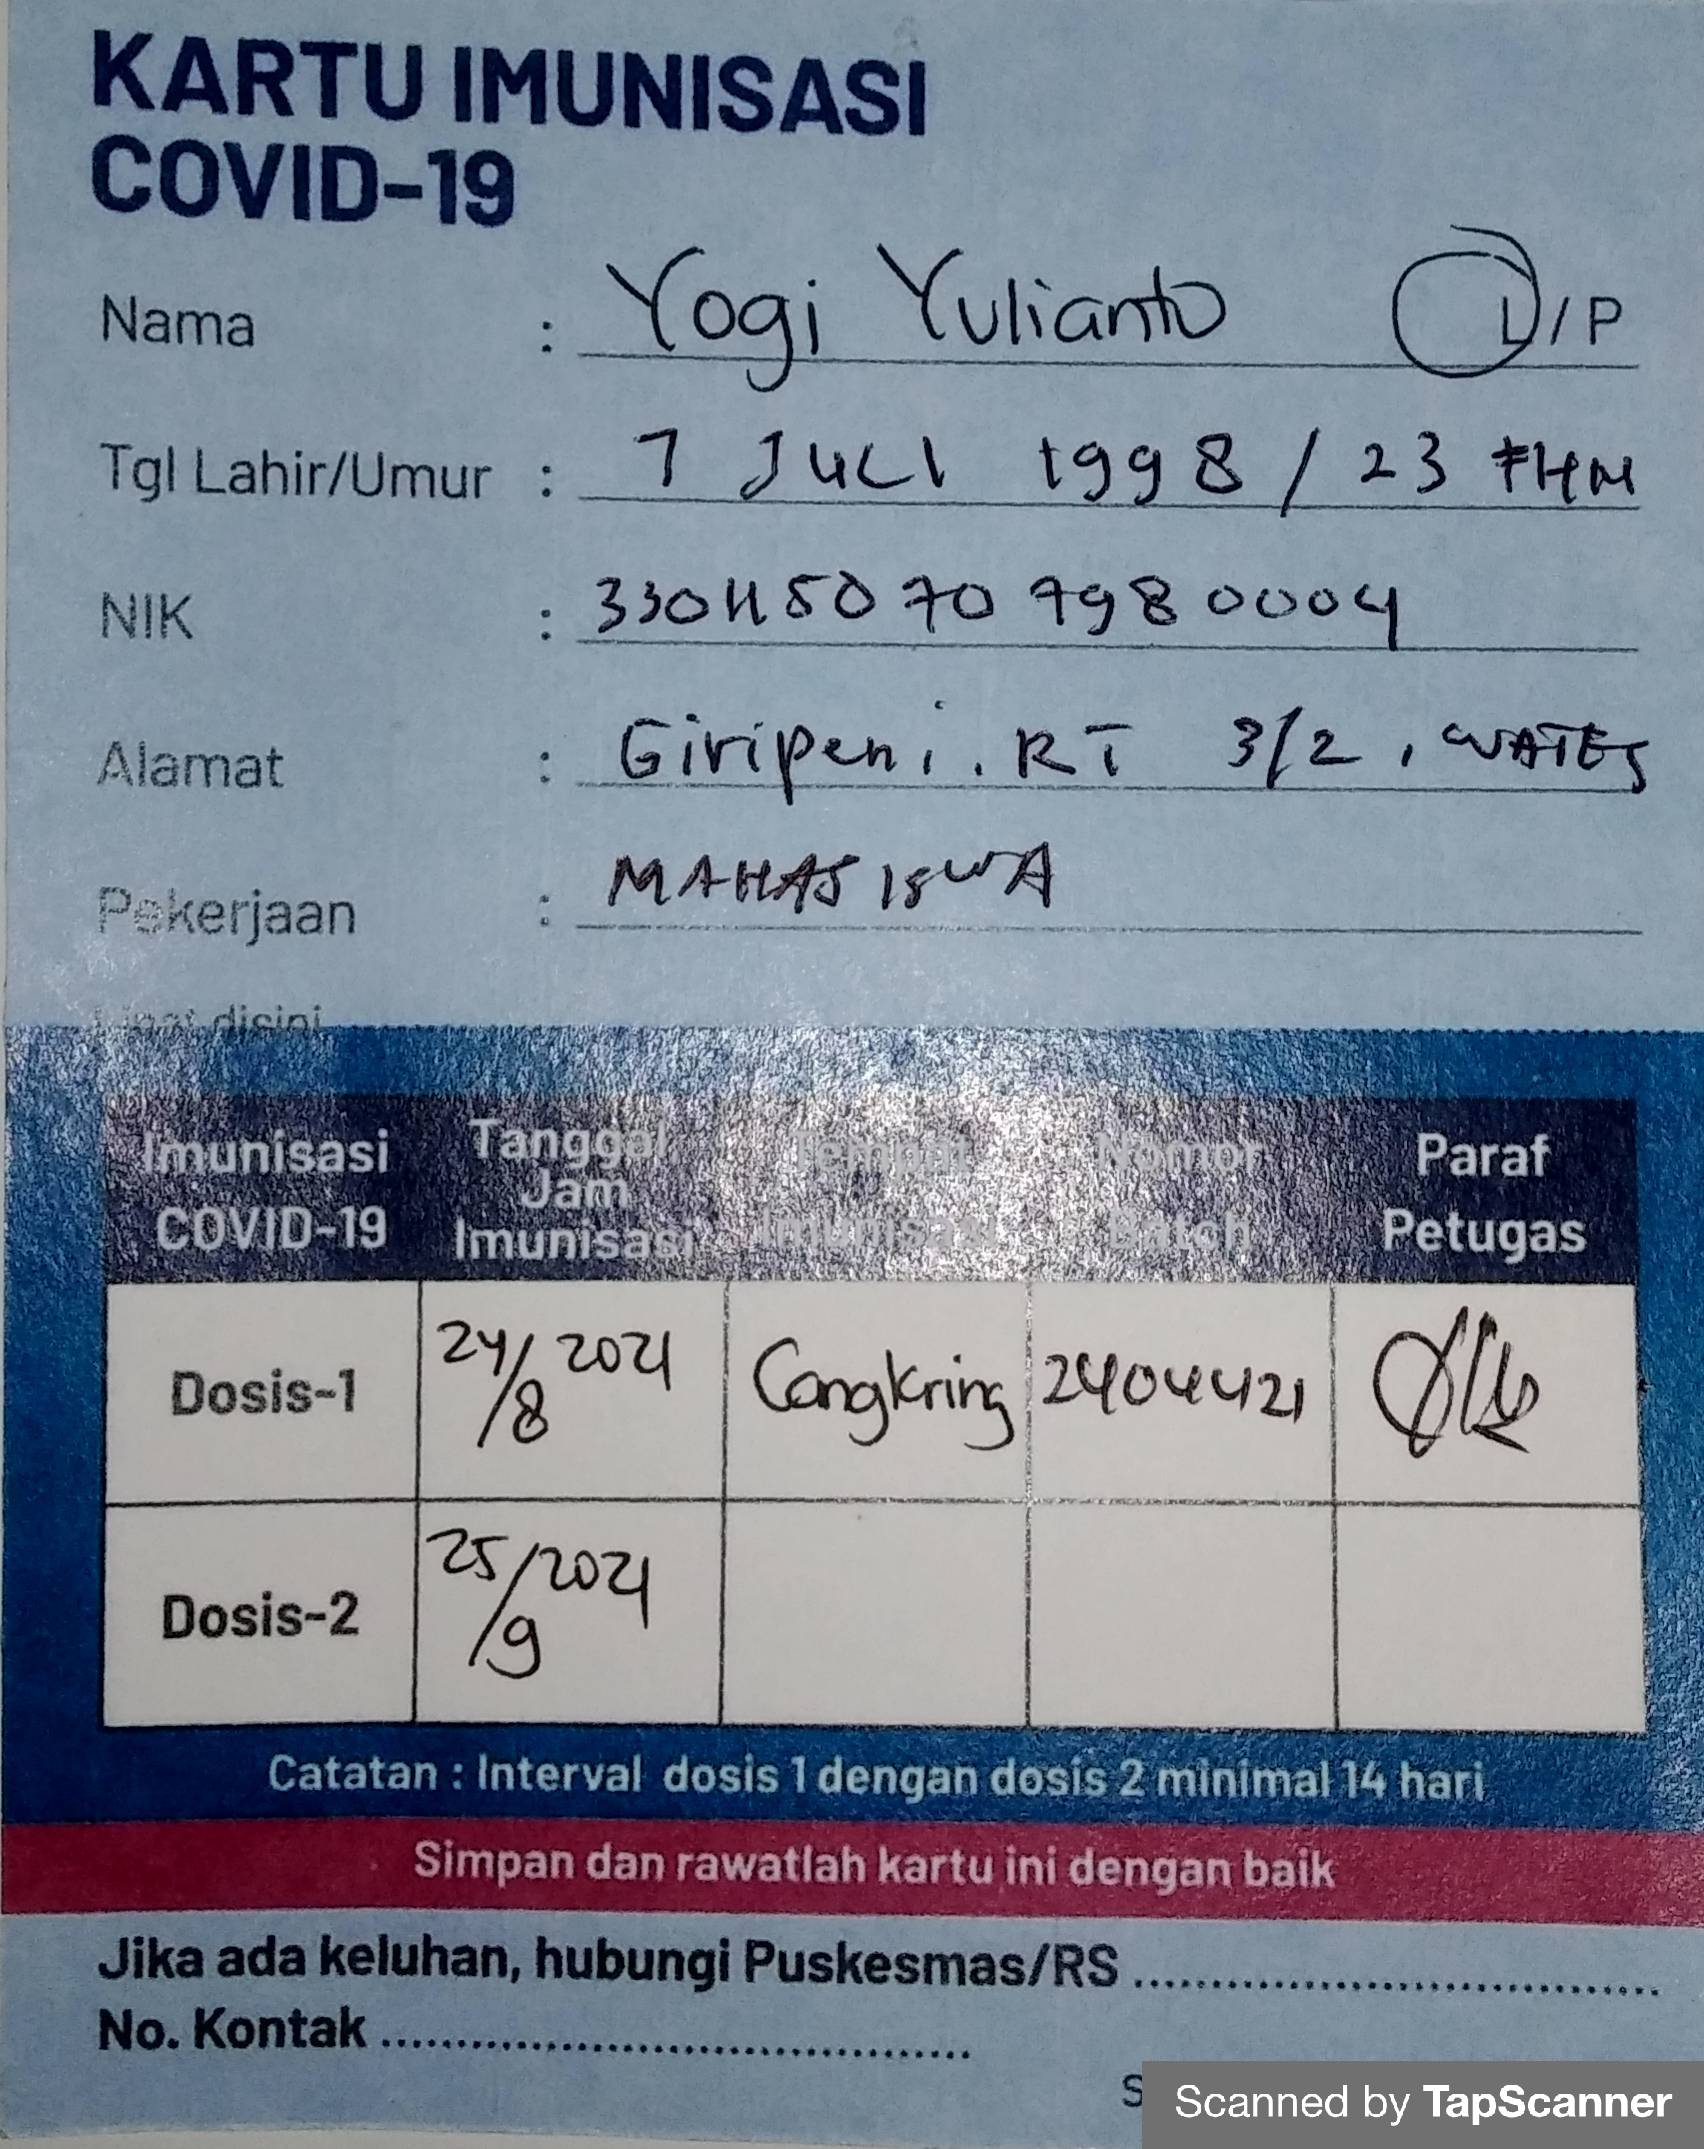 KARTU IMUNISASI
COVID-19
Nama : Yogi Yulianto L/P
Tgl Lahir/Umur : 7 JULI 1998 / 23 THN
NIK : 3304150707980004
Alamat : Giripeni. RT 3/2, WATES
Pekerjaan : MAHASISWA
Lipat disini
Imunisasi COVID-19 Tanggal Jam Imunisasi Tempat Imunisasi Nomor Batch Paraf Petugas
Dosis-1 24/8 2021 Cangkring 24044421
Dosis-2 25/9 2021
Catatan : Interval dosis 1 dengan dosis 2 minimal 14 hari
Simpan dan rawatlah kartu ini dengan baik
Jika ada keluhan, hubungi Puskesmas/RS ..............................
No. Kontak ..............................
S
Scanned by TapScanner